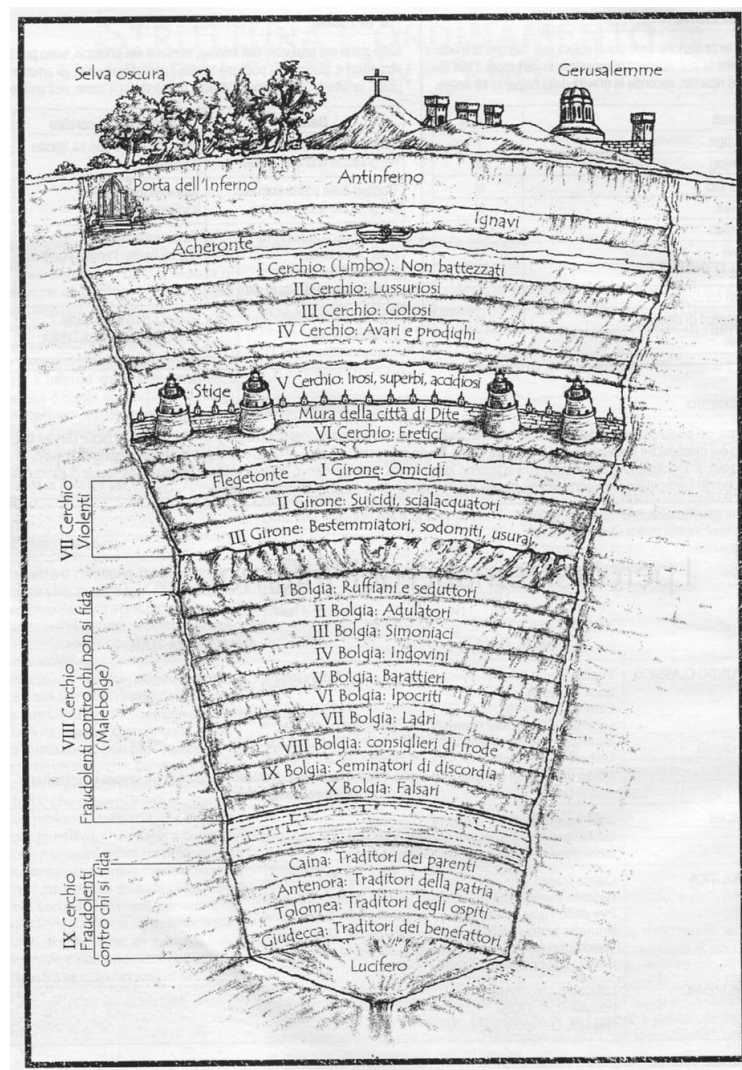 Selva oscura
Gerusalemme
Porta dell'Inferno
Antinferno
Ignavi
Acheronte
I Cerchio: (Limbo): Non battezzati
II Cerchio: Lussuriosi
III Cerchio: Golosi
IV Cerchio: Avari e prodighi
Stige
V Cerchio: Irosi, superbi, accidiosi
Mura della città di Dite
VI Cerchio: Eretici
VII Cerchio
Violenti
Flegetonte
I Girone: Omicidi
II Girone: Suicidi, scialacquatori
III Girone: Bestemmiatori, sodomiti, usurai
VIII Cerchio
Fraudolenti contro chi non si fida
(Malebolge)
I Bolgia: Ruffiani e seduttori
II Bolgia: Adulatori
III Bolgia: Simoniaci
IV Bolgia: Indovini
V Bolgia: Barattieri
VI Bolgia: Ipocriti
VII Bolgia: Ladri
VIII Bolgia: consiglieri di frode
IX Bolgia: Seminatori di discordia
X Bolgia: Falsari
IX Cerchio
Fraudolenti
contro chi si fida
Caina: Traditori dei parenti
Antenora: Traditori della patria
Tolomea: Traditori degli ospiti
Giudecca: Traditori dei benefattori
Lucifero